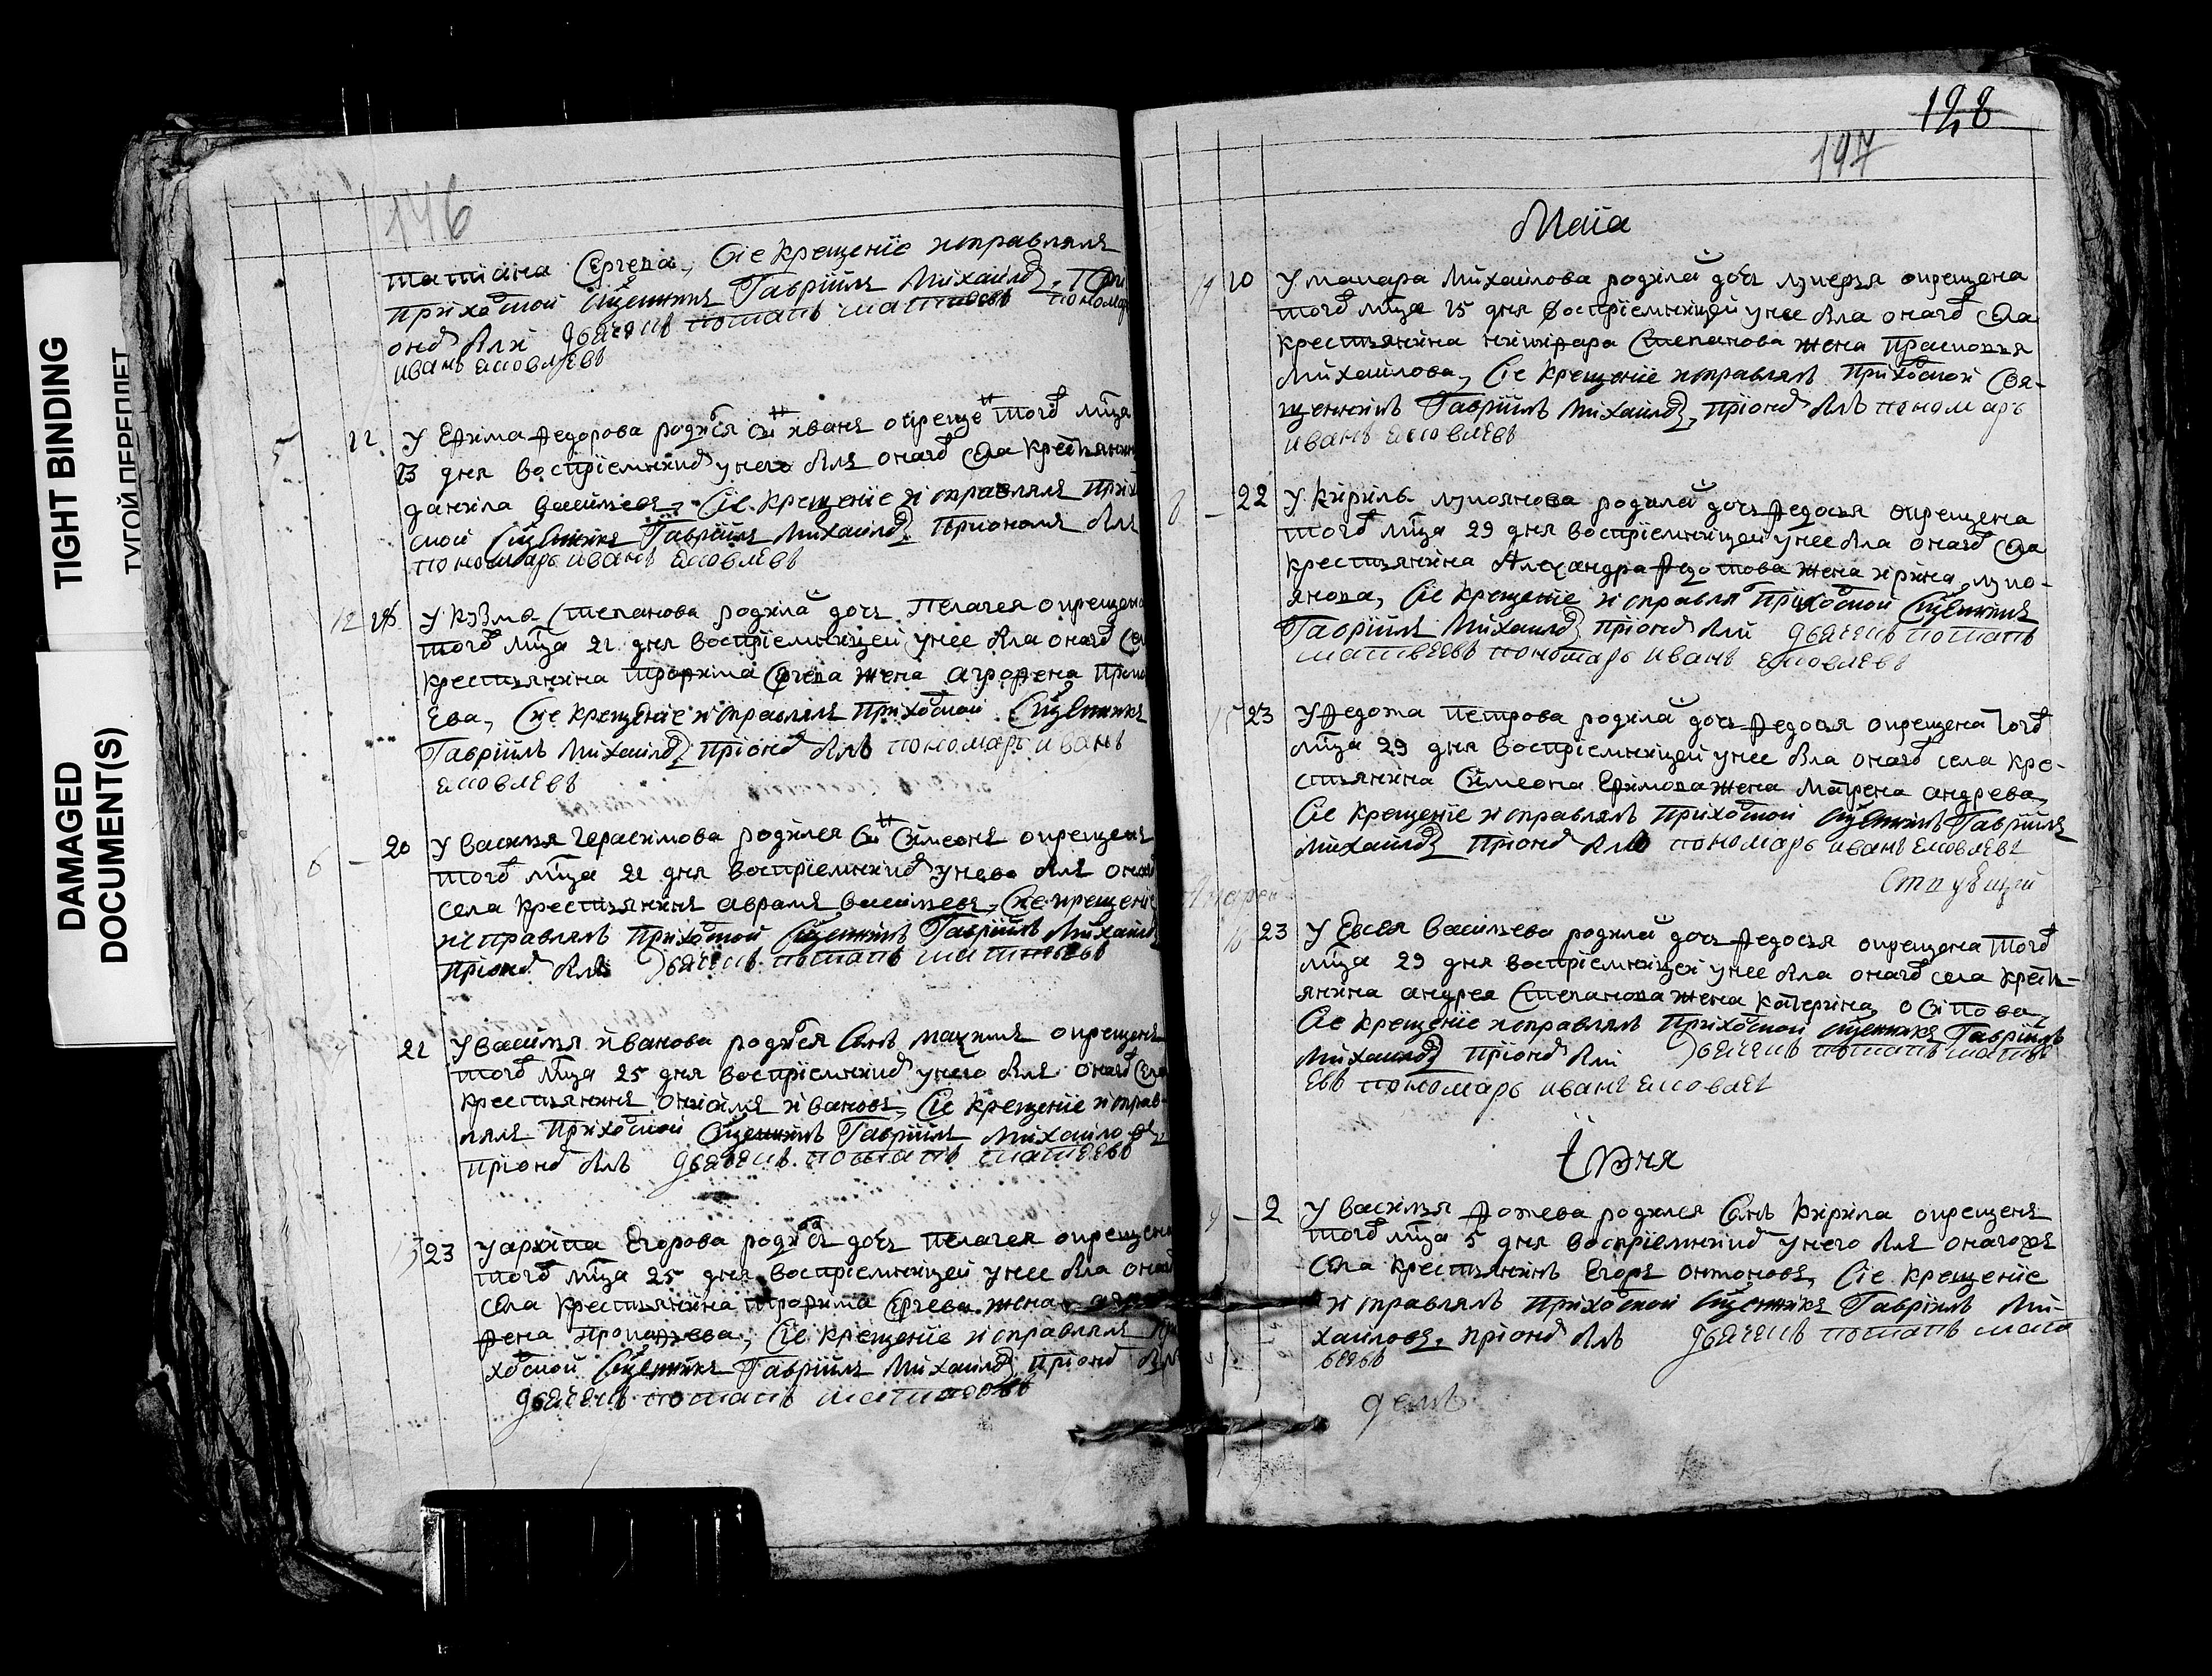 TIGHT BINDING
ТУГОЙ ПЕРЕПЛЕТ
DAMAGED
DOCUMENT(S)
146
татiана Сергева, Сiе крещенiе исправлялъ
приходской священникъ Гаврiилъ Михайловъ, При
оном были дьячекъ потапъ матвеевъ пономарь
иванъ яковлевъ
5 11 У Ефима Федорова родился сын иванъ окрещен того мца
13 дня воспрiемником у него былъ онаго села крестьянин
данiила васильевъ, Сiе крещенiе исправлялъ прихо
ской священникъ Гаврiилъ Михайловъ При ономъ былъ
пономарь иванъ яковлевъ
12 У Кузмы Степанова родилась дочь Пелагея окрещена
того мца 21 дня воспрiемницей у нее была онаго села
крестьянина трофима Сергева жена агрофена Прко
ева, Сiе крещенiе исправлялъ приходской священникъ
Гаврiилъ Михайловъ при оном былъ пономарь иванъ
яковлевъ
6 - 20 У василья герасимова родился сын Симеонъ окрещенъ
того мца 21 дня воспрiемником у нево былъ онаго
села крестьянинъ аврамъ васильевъ, Сiе крещенiе
исправлялъ приходской священникъ Гаврiилъ Михайловъ
при оном былъ дьячекъ потапъ матвеевъ
21 У василья иванова родился сынъ махимъ окрещенъ
того мца 25 дня воспрiемником у него былъ онаго села
крестьянинъ иванов, Сiе крещенiе исправ
лялъ приходской священникъ Гаврiилъ Михайловъ,
при оном былъ дьячекъ потапъ матвеевъ
23 У архiпа Егорова родилась дочь пелагея окрещена
того мца 25 дня воспрiемницей у нее была онаго
села крестьянина трофима Сергева жена агро
фена прокофьева, Сiе крещенiе исправлялъ при
ходской священникъ Гаврiилъ Михайловъ при оном былъ
дьячекъ потапъ матвеевъ
128
147
Маiа
14 10 У макара Михайлова родилась дочь лукерья окрещена
того мца 15 дня воспрiемницей у нее была онаго села
крестьянина никифора Степанова жена прасковья
Михайлова, Сiе крещенiе исправлялъ приходской свя-
щенникъ Гаврiилъ Михайловъ, при оном былъ пономарь
иванъ яковлевъ
8 - 22 У Кирилы лукоянова родилась дочь Федосья окрещена
того мца 29 дня воспрiемницей у нее была онаго села
крестьянина Алехандра Федотова жена ирина луко-
янова, Сiе крещенiе исправлял приходской священникъ
Гаврiилъ Михайловъ при оном были дьячекъ потапъ
матвеевъ пономарь иванъ яковлевъ
15 23 У Федота петрова родилась дочь Федосья окрещена того
мца 29 дня воспрiемницей у нее была онаго села кре-
стьянина Симеона Ефимова жена Матрена андрева,
Сiе крещенiе исправлялъ приходской священникъ Гаврiилъ
Михайловъ при оном былъ пономарь иванъ яковлевъ
16 23 У Евсея Васильева родилась дочь Федосья окрещена того
мца 29 дня воспрiемницей у нее была онаго села крест-
янина андрея Степанова жена катерина осипова,
Сiе крещенiе исправлялъ приходской священникъ Гаврiилъ
Михайловъ при оном были дьячекъ потапъ матве
евъ пономарь иванъ яковлевъ
Iюня
9 - 2 У василья Фокева родился сынъ Кирила окрещенъ
того мца 5 дня воспрiемником у него былъ онагожъ
села крестьянинъ Егоръ антоновъ, Сiе крещенiе
исправлялъ приходской священникъ Гаврiилъ Ми-
хайловъ, при оном былъ дьячекъ потапъ матв
веевъ